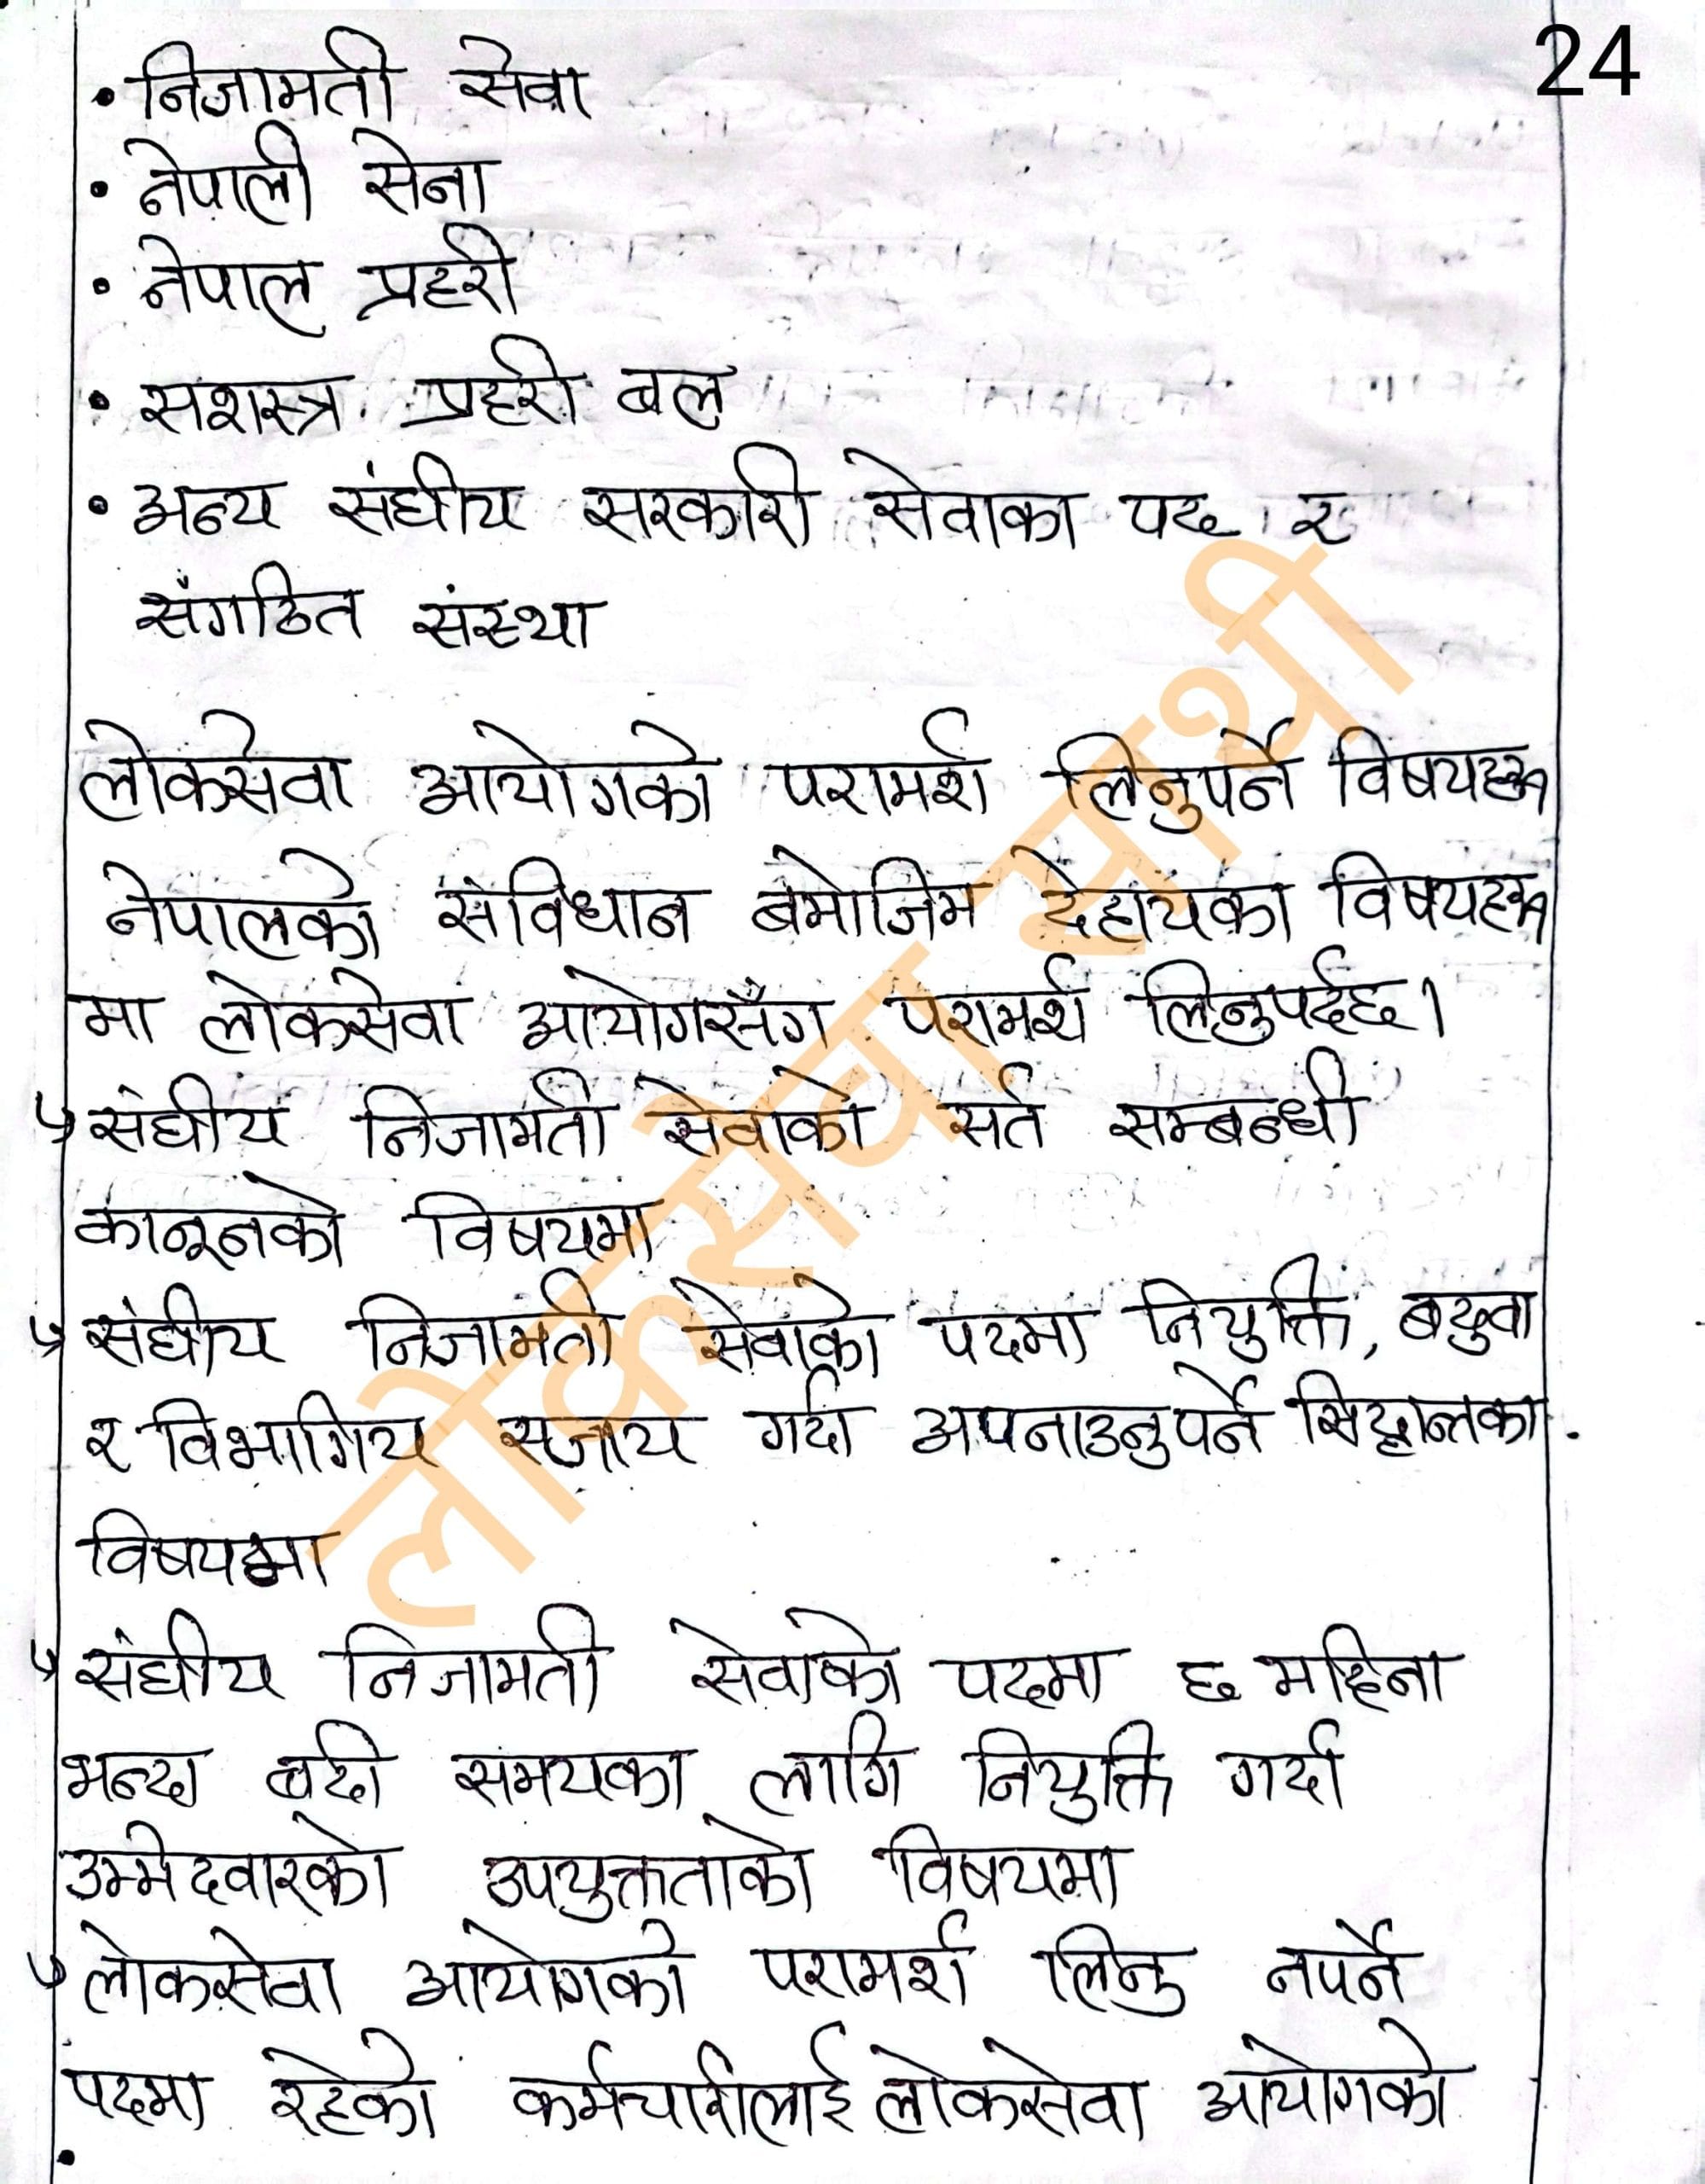 24
• निजामती सेवा
• नेपाली सेना
• नेपाल प्रहरी
• सशस्त्र प्रहरी बल
• अन्य संघीय सरकारी सेवाका पद र
संगठित संस्था
लोकसेवा आयोगको परामर्श लिनुपर्ने विषयहरू
नेपालको संविधान बमोजिम देहायका विषयहरू
मा लोकसेवा आयोगसँग परामर्श लिनुपर्दछ।
↳ संघीय निजामती सेवाको सर्त सम्बन्धी
कानूनको विषयमा
↳ संघीय निजामती सेवाको पदमा नियुक्ति, बढुवा
र विभागिय सजाय गर्दा अपनाउनुपर्ने सिद्धान्तका
विषयमा
↳ संघीय निजामती सेवाको पदमा छ महिना
भन्दा बढी समयका लागि नियुक्ति गर्दा
उम्मेदवारको उपयुक्तताको विषयमा
↳ लोकसेवा आयोगको परामर्श लिनु नपर्ने
पदमा रहेको कर्मचारीलाई लोकसेवा आयोगको
लोकसेवा सारथी